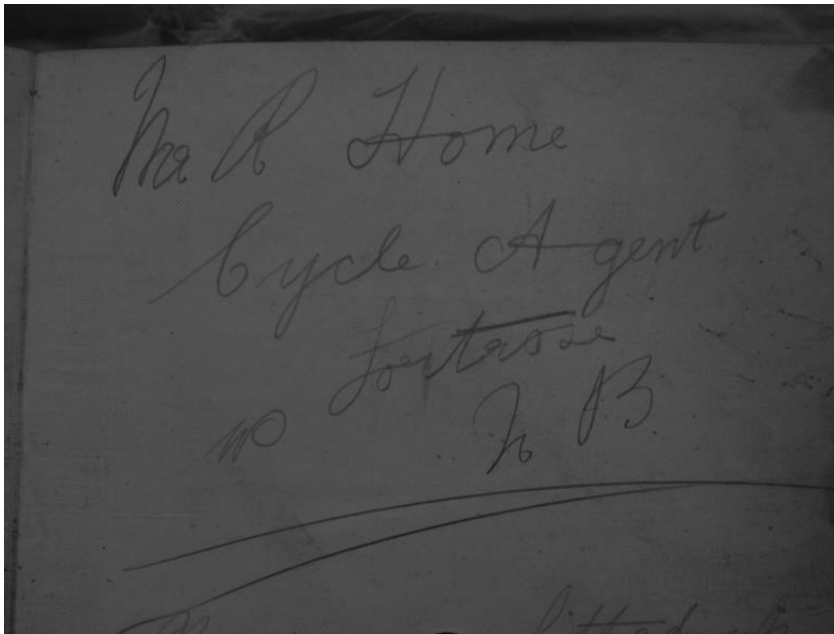 Mr R Home
Cycle Agent
Fortrose
N B